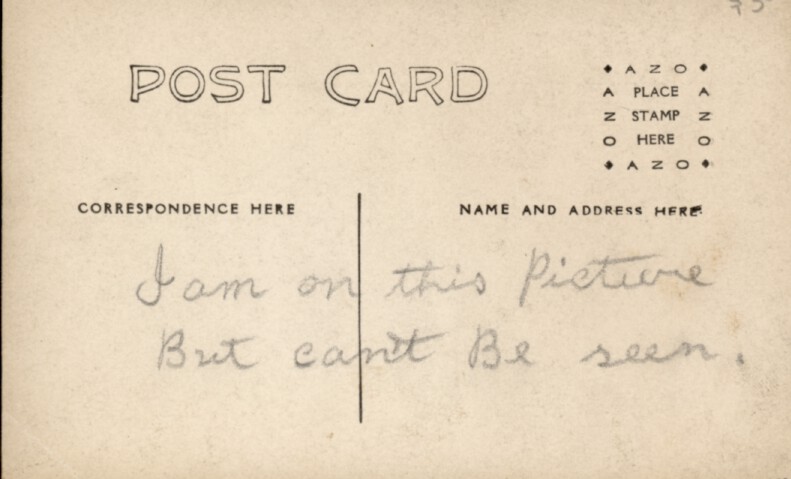 POST CARD
♦ A Z O ♦
A PLACE A
Z STAMP Z
O HERE O
♦ A Z O ♦
CORRESPONDENCE HERE
NAME AND ADDRESS HERE
I am on this Picture
But can't Be seen.